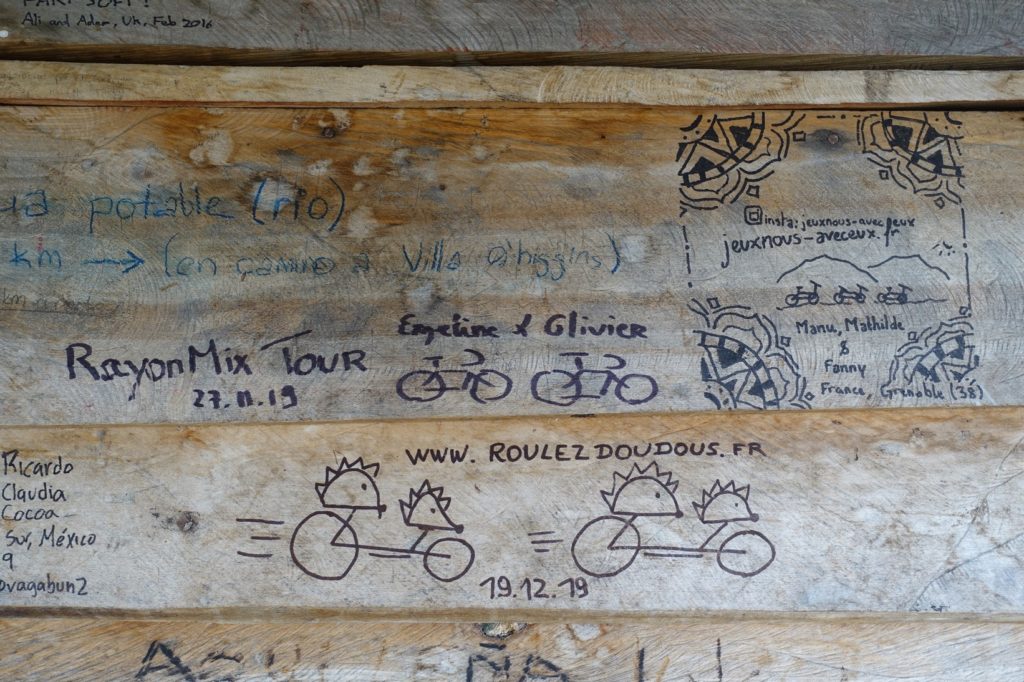 Ali and Adam, Uk, Feb 2016
potable (río)
km → (en camino a Villa O'higgins)
@insta: jeuxnous-avec_eux
jeuxnous-aveceux.fr
Manu, Mathilde
&
Fanny
France, Grenoble (38)
RayonMix Tour
27.11.19
Emeline & Olivier
www.ROULEZDOUDOUS.FR
19.12.19
Ricardo
Claudia
Cocoa
Sur, México
9
ovagabun2